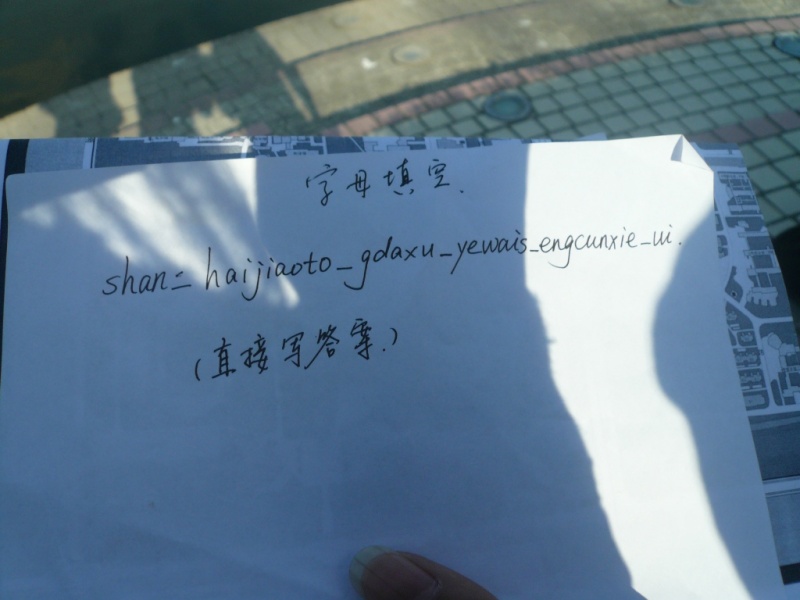 字母填空.
shan_haijiaoto_gdaxu_yewais_engcunxie_ui.
(直接写答案.)